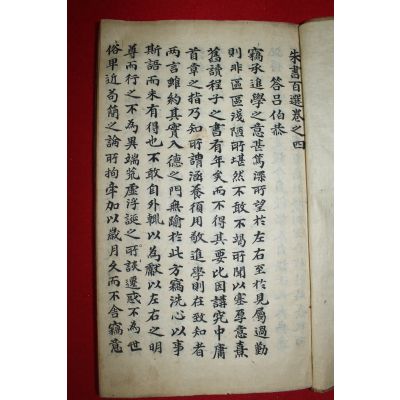 朱書百選卷之四
答呂伯恭
竊承進學之意甚篤深所望於左右至於見屬過勤
則非區區淺陋所堪然不敢不竭所聞以塞厚意熹
舊讀程子之書有年矣而不得其要比因講究中庸
首章之指乃知所謂涵養須用敬進學則在致知者
兩言雖約其實入德之門無踰於此方竊洗心以事
斯語而未有得也不敢自外輒以爲獻以左右之明
尊而行之不爲異端荒虛浮誕之所談遷惑不爲世
俗卑近苟簡之論所拘牽加以歲月久而不舍竊意